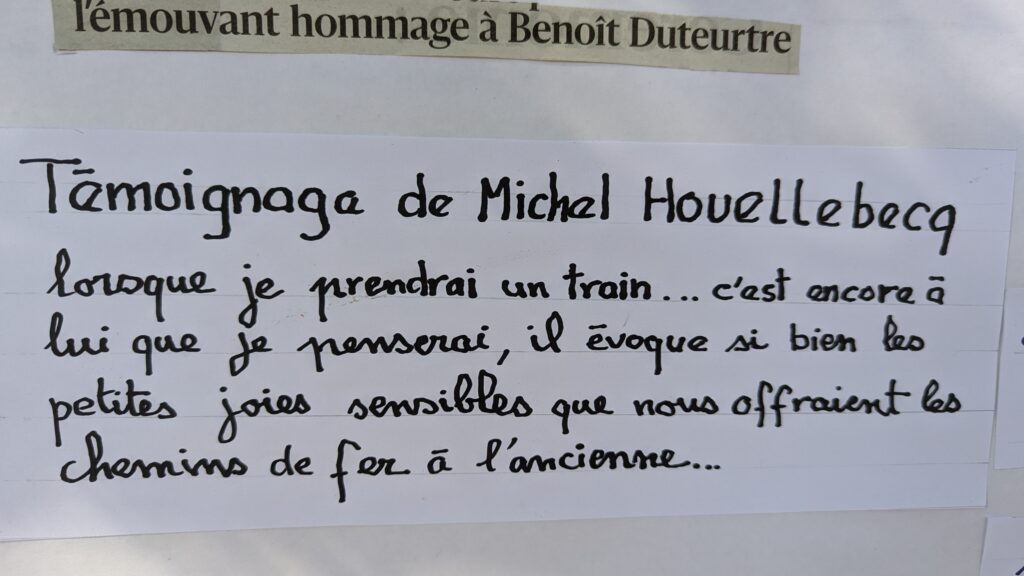 l'émouvant hommage à Benoît Duteurtre
Témoignage de Michel Houellebecq
lorsque je prendrai un train... c'est encore à
lui que je penserai, il évoque si bien les
petites joies sensibles que nous offraient les
chemins de fer à l'ancienne...